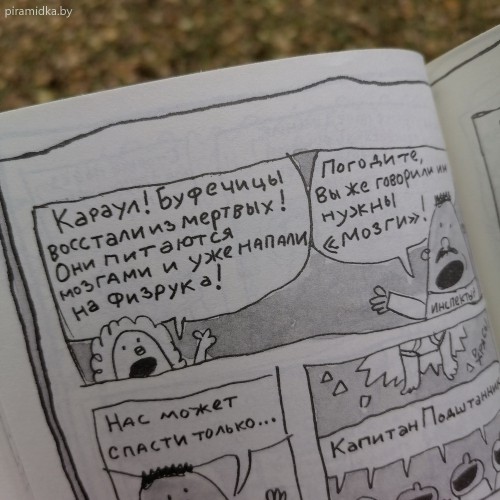 piramidka.by
Караул! Буфечицы
восстали из мертвых!
Они питаются
мозгами и уже напали
на физрука!
Погодите,
вы же говорили им
нужны
«мозги»!
инспектор
Нас может
спасти только...
Капитан Подштанник